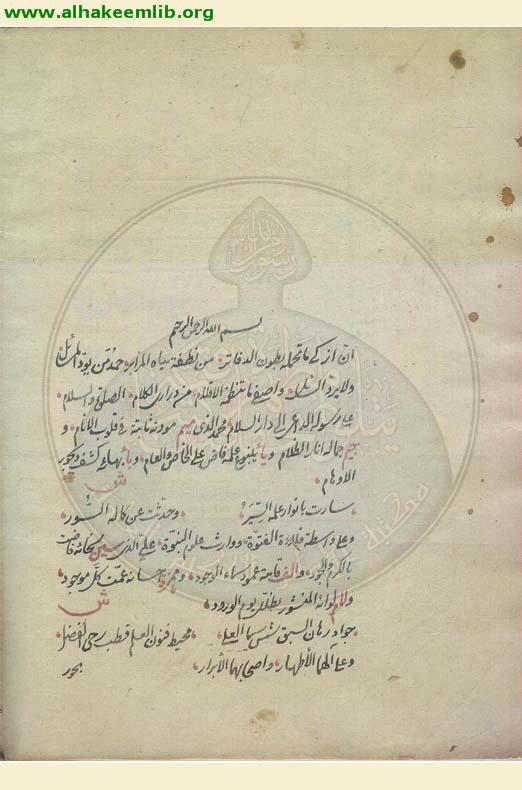 www.alhakeemlib.org
بسم الله الرحمن الرحيم
ان ازكى ما تحمله بطون الدفاتر من نطفة مياه المحابر حمد من يود السائل
ولا يرد السائل واصفى ما تنظمه الاقلام من درارى الكلام الصلوة والسلام
على رسوله الداعى الى دار السلام محمد الذى ميم مودته ثابتة فى قلوب الانام و
جيم جماله انار الظلام وياء ينبوع علمه فاض على الخاص والعام وباء بهاءه كشف ديجور
الاوهام
ش
سارت بانوار علمه السير وحدثت عن كماله السور
وعلى واسطة قلادة الفتوة ووارث علوم النبوة على الذى سين سحابه فاضت
بالكرم والجود والف قامته عمود سماء الوجود وهمزة احسانه عمت كل موجود
ولام لوائه المنشور يظلل يوم الورود
ش
جواد رهان السبق شمس سما العلى محيط فنون العلم قطب رحى الفضل
وعلى آلهما الأطهار واصحابهما الأبرار
بحور
رسول الله